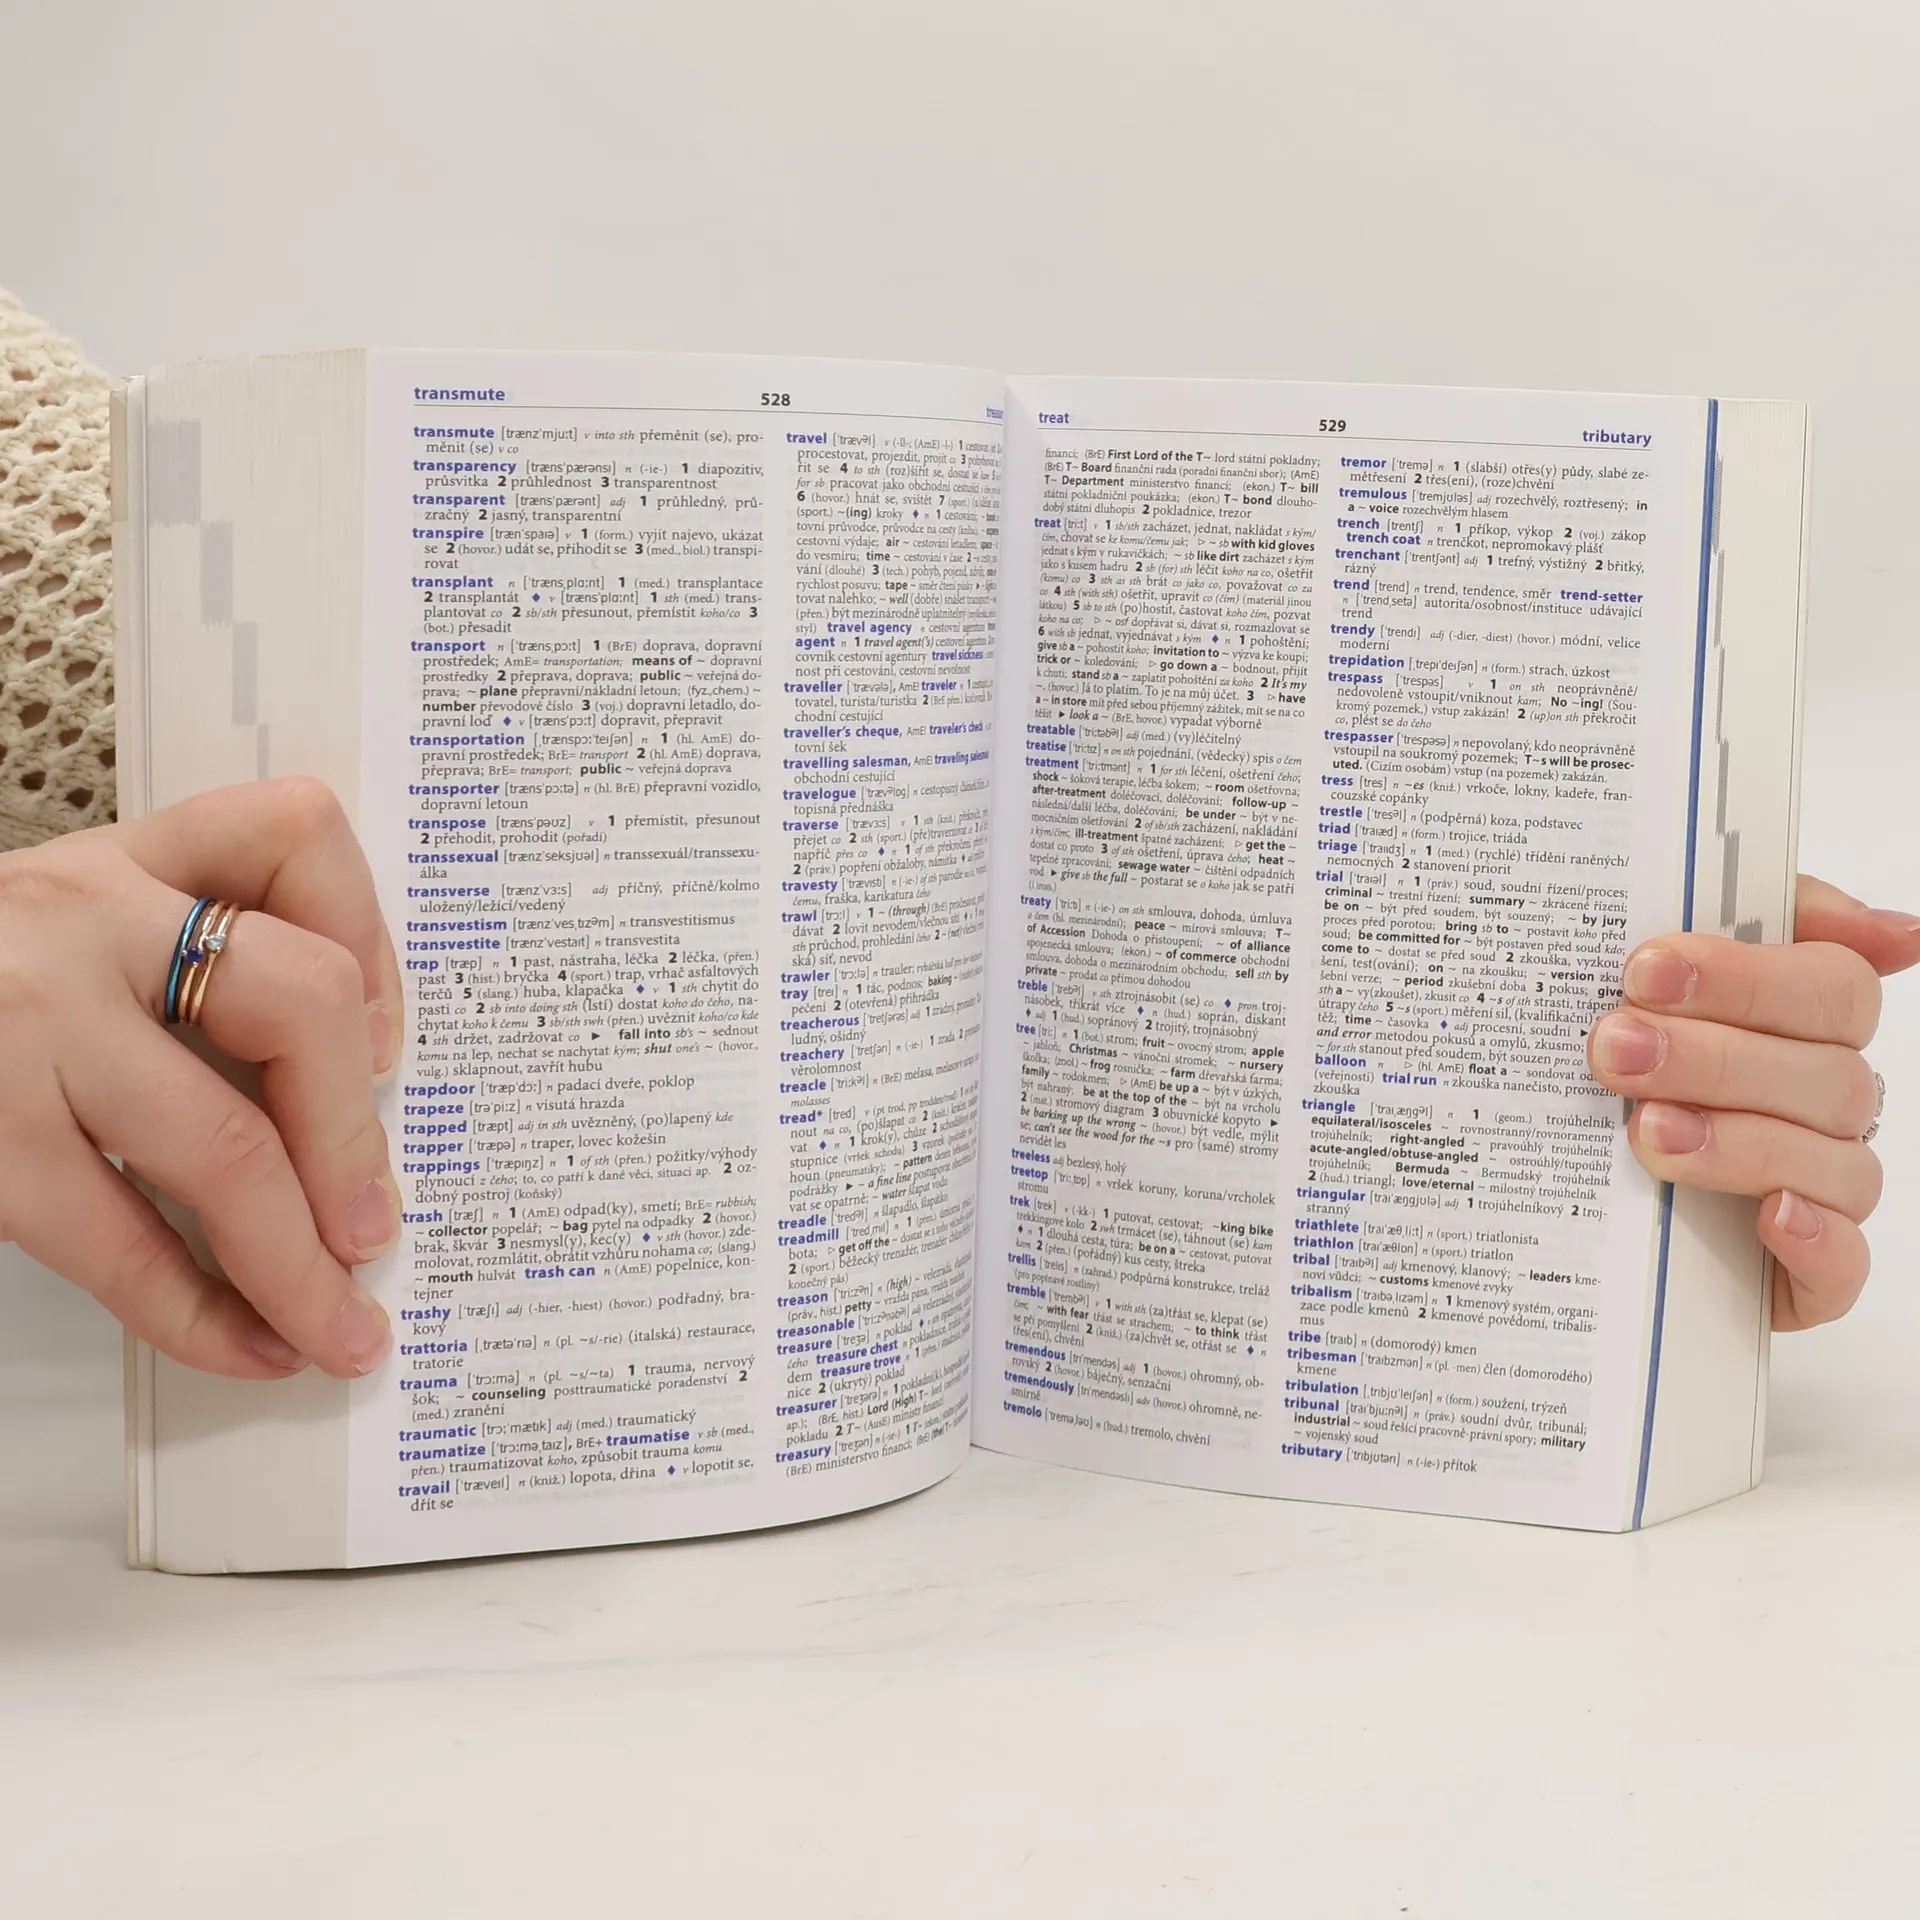 transmute 528
transmute [trænzˈmjuːt] v into sth přeměnit (se), pro-
měnit (se) v co
transparency [trænsˈpærənsɪ] n (-ie-) 1 diapozitiv,
průsvitka 2 průhlednost 3 transparentnost
transparent [trænsˈpærənt] adj 1 průhledný, prů-
zračný 2 jasný, transparentní
transpire [trænˈspaɪə] v 1 (form.) vyjít najevo, ukázat
se 2 (hovor.) udát se, přihodit se 3 (med., biol.) transpi-
rovat
transplant n [ˈtrænsˌplɑːnt] 1 (med.) transplantace
2 transplantát ♦ v [trænsˈplɑːnt] 1 sth (med.) trans-
plantovat co 2 sb/sth přesunout, přemístit koho/co 3
(bot.) přesadit
transport n [ˈtrænsˌpɔːt] 1 (BrE) doprava, dopravní
prostředek; AmE= transportation; means of ~ dopravní
prostředky 2 přeprava, doprava; public ~ veřejná do-
prava; ~ plane přepravní/nákladní letoun; (fyz.,chem.) ~
number převodové číslo 3 (voj.) dopravní letadlo, do-
pravní loď ♦ v [trænsˈpɔːt] dopravit, přepravit
transportation [ˌtrænspɔːˈteɪʃən] n 1 (hl. AmE) do-
pravní prostředek; BrE= transport 2 (hl. AmE) doprava,
přeprava; BrE= transport; public ~ veřejná doprava
transporter [trænsˈpɔːtə] n (hl. BrE) přepravní vozidlo,
dopravní letoun
transpose [trænsˈpəʊz] v 1 přemístit, přesunout
2 přehodit, prohodit (pořadí)
transsexual [trænzˈseksjʊəl] n transsexuál/transsexu-
álka
transverse [trænzˈvɜːs] adj příčný, příčně/kolmo
uložený/ležící/vedený
transvestism [trænzˈvesˌtɪzəm] n transvestitismus
transvestite [trænzˈvestaɪt] n transvestita
trap [træp] n 1 past, nástraha, léčka 2 léčka, (přen.)
past 3 (hist.) bryčka 4 (sport.) trap, vrhač asfaltových
terčů 5 (slang.) huba, klapačka ♦ v 1 sth chytit do
pasti co 2 sb into doing sth (lstí) dostat koho do čeho, na-
chytat koho k čemu 3 sb/sth swh (přen.) uvěznit koho/co kde
4 sth držet, zadržovat co ► fall into sb's ~ sednout
komu na lep, nechat se nachytat kým; shut one's ~ (hovor.,
vulg.) sklapnout, zavřít hubu
trapdoor [ˈtræpˈdɔː] n padací dveře, poklop
trapeze [trəˈpiːz] n visutá hrazda
trapped [træpt] adj in sth uvězněný, (po)lapený kde
trapper [ˈtræpə] n traper, lovec kožešin
trappings [ˈtræpɪŋz] n 1 of sth (přen.) požitky/výhody
plynoucí z čeho; to, co patří k dané věci, situaci ap. 2 oz-
dobný postroj (koňský)
trash [træʃ] n 1 (AmE) odpad(ky), smetí; BrE= rubbish;
~ collector popelář; ~ bag pytel na odpadky 2 (hovor.)
brak, škvár 3 nesmysl(y), kec(y) ♦ v sth (hovor.) zde-
molovat, rozmlátit, obrátit vzhůru nohama co; (slang.)
~ mouth hulvát trash can n (AmE) popelnice, kon-
tejner
trashy [ˈtræʃɪ] adj (-hier, -hiest) (hovor.) podřadný, bra-
kový
trattoria [ˌtrætəˈrɪə] n (pl. ~s/-rie) (italská) restaurace,
tratorie
trauma [ˈtrɔːmə] n (pl. ~s/~ta) 1 trauma, nervový
šok; ~ counseling posttraumatické poradenství 2
(med.) zranění
traumatic [trɔːˈmætɪk] adj (med.) traumatický
traumatize [ˈtrɔːməˌtaɪz], BrE+ traumatise v sb (med.,
přen.) traumatizovat koho, způsobit trauma komu
travail [ˈtræveɪl] n (kniž.) lopota, dřina ♦ v lopotit se,
dřít se
travel [ˈtrævəl] v (-ll-; (AmE) -l-) 1 cestovat,
procestovat, projezdit, projít co 3
řit se 4 to sth (roz)šířit se, dostat se kam 5
for sb pracovat jako obchodní cestující
6 (hovor.) hnát se, svištět 7 (sport.)
(sport.) ~(ing) kroky ♦ n 1 cestování;
tovní průvodce, průvodce na cesty (kniha),
cestovní výdaje; air ~ cestování letadlem;
do vesmíru; time ~ cestování v čase 2
vání (dlouhé) 3 (tech.) pohyb, pojezd,
rychlost posuvu; tape ~ směr čtení pásky
tovat nalehko; ~ well (dobře) snášet
(přen.) být mezinárodně uplatnitelný
styl) travel agency n cestovní agentura
agent n 1 travel agent('s) cestovní agentura
covník cestovní agentury travel sickness
nost při cestování, cestovní nevolnost
traveller [ˈtrævələ], AmE traveler n 1
tovatel, turista/turistka 2 (BrE přen.)
chodní cestující
traveller's cheque, AmE traveler's check
tovní šek
travelling salesman, AmE traveling salesman
obchodní cestující
travelogue [ˈtrævəlɒg] n cestopisný
topisná přednáška
traverse [ˈtrævɜːs] v 1 sth (kniž.)
přejet co 2 sth (sport.) (pře)traverzovat
napříč přes co ♦ n 1 of sth překročení,
2 (práv.) popření obžaloby, námitka
travesty [ˈtrævɪstɪ] n (-ie-) of sth parodie
čemu, fraška, karikatura čeho
trawl [trɔːl] v 1 ~ (through) (BrE)
dávat 2 lovit nevodem/vlečnou sítí
sth průchod, prohledání čeho 2
ská) síť, nevod
trawler [ˈtrɔːlə] n trauler;
tray [treɪ] n 1 tác, podnos; baking ~
pečení 2 (otevřená) přihrádka
treacherous [ˈtretʃərəs] adj 1 zrádný,
ludný, ošidný
treachery [ˈtretʃərɪ] n (-ie-) 1 zrada 2
věrolomnost
treacle [ˈtriːkəl] n (BrE) melasa,
molasses
tread* [tred] v (pt trod, pp trodden/trod) 1
nout na co, (po)šlapat co 2
vat ♦ n 1 krok(y), chůze 2
stupnice (vršek schodu) 3 vzorek
houn (pneumatiky); ~ pattern
podrážky ► ~ a fine line postupovat
vat se opatrně; ~ water šlapat vodu
treadle [ˈtredəl] n šlapadlo, šlapátko
treadmill [ˈtredˌmɪl] n 1 (přen.)
bota; ▷ get off the ~
2 (sport.) běžecký trenažér,
konečný pás)
treason [ˈtriːzən] n (high) ~ velezrada,
(práv., hist.) petty ~ vražda pána,
treasonable [ˈtriːzənəbəl] adj
treasure [ˈtreʒə] n poklad ♦ v
čeho treasure chest n
dem treasure trove n 1
nice 2 (ukrytý) poklad
treasurer [ˈtreʒərə] n 1 pokladní(k),
ap.); (BrE, hist.) Lord (High) T~
pokladu 2 T~ (AusE) ministr financí
treasury [ˈtreʒərɪ] n (-ie-) 1 T~
(BrE) ministerstvo financí;
treat 529 tributary
financí; (BrE) First Lord of the T~ lord státní pokladny;
(BrE) T~ Board finanční rada (poradní finanční sbor); (AmE)
T~ Department ministerstvo financí; (ekon.) T~ bill
státní pokladniční poukázka; (ekon.) T~ bond dlouho-
dobý státní dluhopis 2 pokladnice, trezor
treat [triːt] v 1 sb/sth zacházet, jednat, nakládat s kým/
čím, chovat se ke komu/čemu jak; ▷ ~ sb with kid gloves
jednat s kým v rukavičkách; ~ sb like dirt zacházet s kým
jako s kusem hadru 2 sb (for) sth léčit koho na co, ošetřit
(komu) co 3 sth as sth brát co jako co, považovat co za
co 4 sth (with sth) ošetřit, upravit co (čím) (materiál jinou
látkou) 5 sb to sth (po)hostit, častovat koho čím, pozvat
koho na co; ▷ ~ osf dopřávat si, dávat si, rozmazlovat se
6 with sb jednat, vyjednávat s kým ♦ n 1 pohoštění;
give sb a ~ pohostit koho; invitation to ~ výzva ke koupi;
trick or ~ koledování; ▷ go down a ~ bodnout, přijít
k chuti; stand sb a ~ zaplatit pohoštění za koho 2 It's my
~. (hovor.) Já to platím. To je na můj účet. 3 ▷ have
a ~ in store mít před sebou příjemný zážitek, mít se na co
těšit ► look a ~ (BrE, hovor.) vypadat výborně
treatable [ˈtriːtəbəl] adj (med.) (vy)léčitelný
treatise [ˈtriːtɪz] n on sth pojednání, (vědecký) spis o čem
treatment [ˈtriːtmənt] n 1 for sth léčení, ošetření čeho;
shock ~ šoková terapie, léčba šokem; ~ room ošetřovna;
after-treatment doléčovací, doléčování; follow-up ~
následná/další léčba, doléčování; be under ~ být v ne-
mocničním ošetřování 2 of sb/sth zacházení, nakládání
s kým/čím; ill-treatment špatné zacházení; ▷ get the ~
dostat co proto 3 of sth ošetření, úprava čeho; heat ~
tepelné zpracování; sewage water ~ čištění odpadních
vod ► give sb the full ~ postarat se o koho jak se patří
(i iron.)
treaty [ˈtriːtɪ] n (-ie-) on sth smlouva, dohoda, úmluva
o čem (hl. mezinárodní); peace ~ mírová smlouva; T~
of Accession Dohoda o přistoupení; ~ of alliance
spojenecká smlouva; (ekon.) ~ of commerce obchodní
smlouva, dohoda o mezinárodním obchodu; sell sth by
private ~ prodat co přímou dohodou
treble [ˈtrebəl] v sth ztrojnásobit (se) co ♦ pron troj-
násobek, třikrát více ♦ n (hud.) soprán, diskant
♦ adj 1 (hud.) sopránový 2 trojitý, trojnásobný
tree [triː] n 1 (bot.) strom; fruit ~ ovocný strom; apple
~ jabloň; Christmas ~ vánoční stromek; ~ nursery
školka; (zool.) ~ frog rosnička; ~ farm dřevařská farma;
family ~ rodokmen; ▷ (AmE) be up a ~ být v úzkých,
být nahraný; be at the top of the ~ být na vrcholu
2 (mat.) stromový diagram 3 obuvnické kopyto ►
be barking up the wrong ~ (hovor.) být vedle, mýlit
se; can't see the wood for the ~s pro (samé) stromy
nevidět les
treeless adj bezlesý, holý
treetop [ˈtriːˌtɒp] n vršek koruny, koruna/vrcholek
stromu
trek [trek] v (-kk-) 1 putovat, cestovat; ~king bike
trekkingové kolo 2 swh trmácet (se), táhnout (se) kam
♦ n 1 dlouhá cesta, túra; be on a ~ cestovat, putovat
kam 2 (přen.) (pořádný) kus cesty, štreka
trellis [ˈtrelɪs] n (zahrad.) podpůrná konstrukce, treláž
(pro popínavé rostliny)
tremble [ˈtrembəl] v 1 with sth (za)třást se, klepat (se)
čím; ~ with fear třást se strachem; ~ to think třást
se při pomyšlení 2 (kniž.) (za)chvět se, otřást se ♦ n
třes(ení), chvění
tremendous [trɪˈmendəs] adj 1 (hovor.) ohromný, ob-
rovský 2 (hovor.) báječný, senzační
tremendously [trɪˈmendəslɪ] adv (hovor.) ohromně, ne-
smírně
tremolo [ˈtreməˌləʊ] n (hud.) tremolo, chvění
tremor [ˈtremə] n 1 (slabší) otřes(y) půdy, slabé ze-
mětřesení 2 třes(ení), (roze)chvění
tremulous [ˈtremjʊləs] adj rozechvělý, roztřesený; in
a ~ voice rozechvělým hlasem
trench [trentʃ] n 1 příkop, výkop 2 (voj.) zákop
trench coat n trenčkot, nepromokavý plášť
trenchant [ˈtrentʃənt] adj 1 trefný, výstižný 2 břitký,
rázný
trend [trend] n trend, tendence, směr trend-setter
n [ˈtrendˌsetə] autorita/osobnost/instituce udávající
trend
trendy [ˈtrendɪ] adj (-dier, -diest) (hovor.) módní, velice
moderní
trepidation [ˌtrepɪˈdeɪʃən] n (form.) strach, úzkost
trespass [ˈtrespəs] v 1 on sth neoprávněně/
nedovoleně vstoupit/vniknout kam; No ~ing! (Sou-
kromý pozemek,) vstup zakázán! 2 (up)on sth překročit
co, plést se do čeho
trespasser [ˈtrespəsə] n nepovolaný, kdo neoprávněně
vstoupil na soukromý pozemek; T~s will be prosec-
uted. (Cizím osobám) vstup (na pozemek) zakázán.
tress [tres] n ~es (kniž.) vrkoče, lokny, kadeře, fran-
couzské copánky
trestle [ˈtresəl] n (podpěrná) koza, podstavec
triad [ˈtraɪæd] n (form.) trojice, triáda
triage [ˈtraɪɪdʒ] n 1 (med.) (rychlé) třídění raněných/
nemocných 2 stanovení priorit
trial [ˈtraɪəl] n 1 (práv.) soud, soudní řízení/proces;
criminal ~ trestní řízení; summary ~ zkrácené řízení;
be on ~ být před soudem, být souzený; ~ by jury
proces před porotou; bring sb to ~ postavit koho před
soud; be committed for ~ být postaven před soud kdo;
come to ~ dostat se před soud 2 zkouška, vyzkou-
šení, test(ování); on ~ na zkoušku; ~ version zku-
šební verze; ~ period zkušební doba 3 pokus; give
sth a ~ vy(zkoušet), zkusit co 4 ~s of sth strasti, trápení
útrapy čeho 5 ~s (sport.) měření sil, (kvalifikační)
těž; time ~ časovka ♦ adj procesní, soudní ►
and error metodou pokusů a omylů, zkusmo;
~ for sth stanout před soudem, být souzen pro co
balloon n ▷ (hl. AmE) float a ~ sondovat
(veřejnosti) trial run n zkouška nanečisto, provozní
zkouška
triangle [ˈtraɪˌæŋgəl] n 1 (geom.) trojúhelník;
equilateral/isosceles ~ rovnostranný/rovnoramenný
trojúhelník; right-angled ~ pravoúhlý trojúhelník;
acute-angled/obtuse-angled ~ ostroúhlý/tupoúhlý
trojúhelník; Bermuda ~ Bermudský trojúhelník
2 (hud.) triangl; love/eternal ~ milostný trojúhelník
triangular [traɪˈæŋgjʊlə] adj 1 trojúhelníkový 2 troj-
stranný
triathlete [traɪˈæθˌliːt] n (sport.) triatlonista
triathlon [traɪˈæθlɒn] n (sport.) triatlon
tribal [ˈtraɪbəl] adj kmenový, klanový; ~ leaders kme-
noví vůdci; ~ customs kmenové zvyky
tribalism [ˈtraɪbəˌlɪzəm] n 1 kmenový systém, organi-
zace podle kmenů 2 kmenové povědomí, tribalis-
mus
tribe [traɪb] n (domorodý) kmen
tribesman [ˈtraɪbzmən] n (pl. -men) člen (domorodého)
kmene
tribulation [ˌtrɪbjʊˈleɪʃən] n (form.) soužení, trýzeň
tribunal [traɪˈbjuːnəl] n (práv.) soudní dvůr, tribunál;
industrial ~ soud řešící pracovně-právní spory; military
~ vojenský soud
tributary [ˈtrɪbjʊtərɪ] n (-ie-) přítok